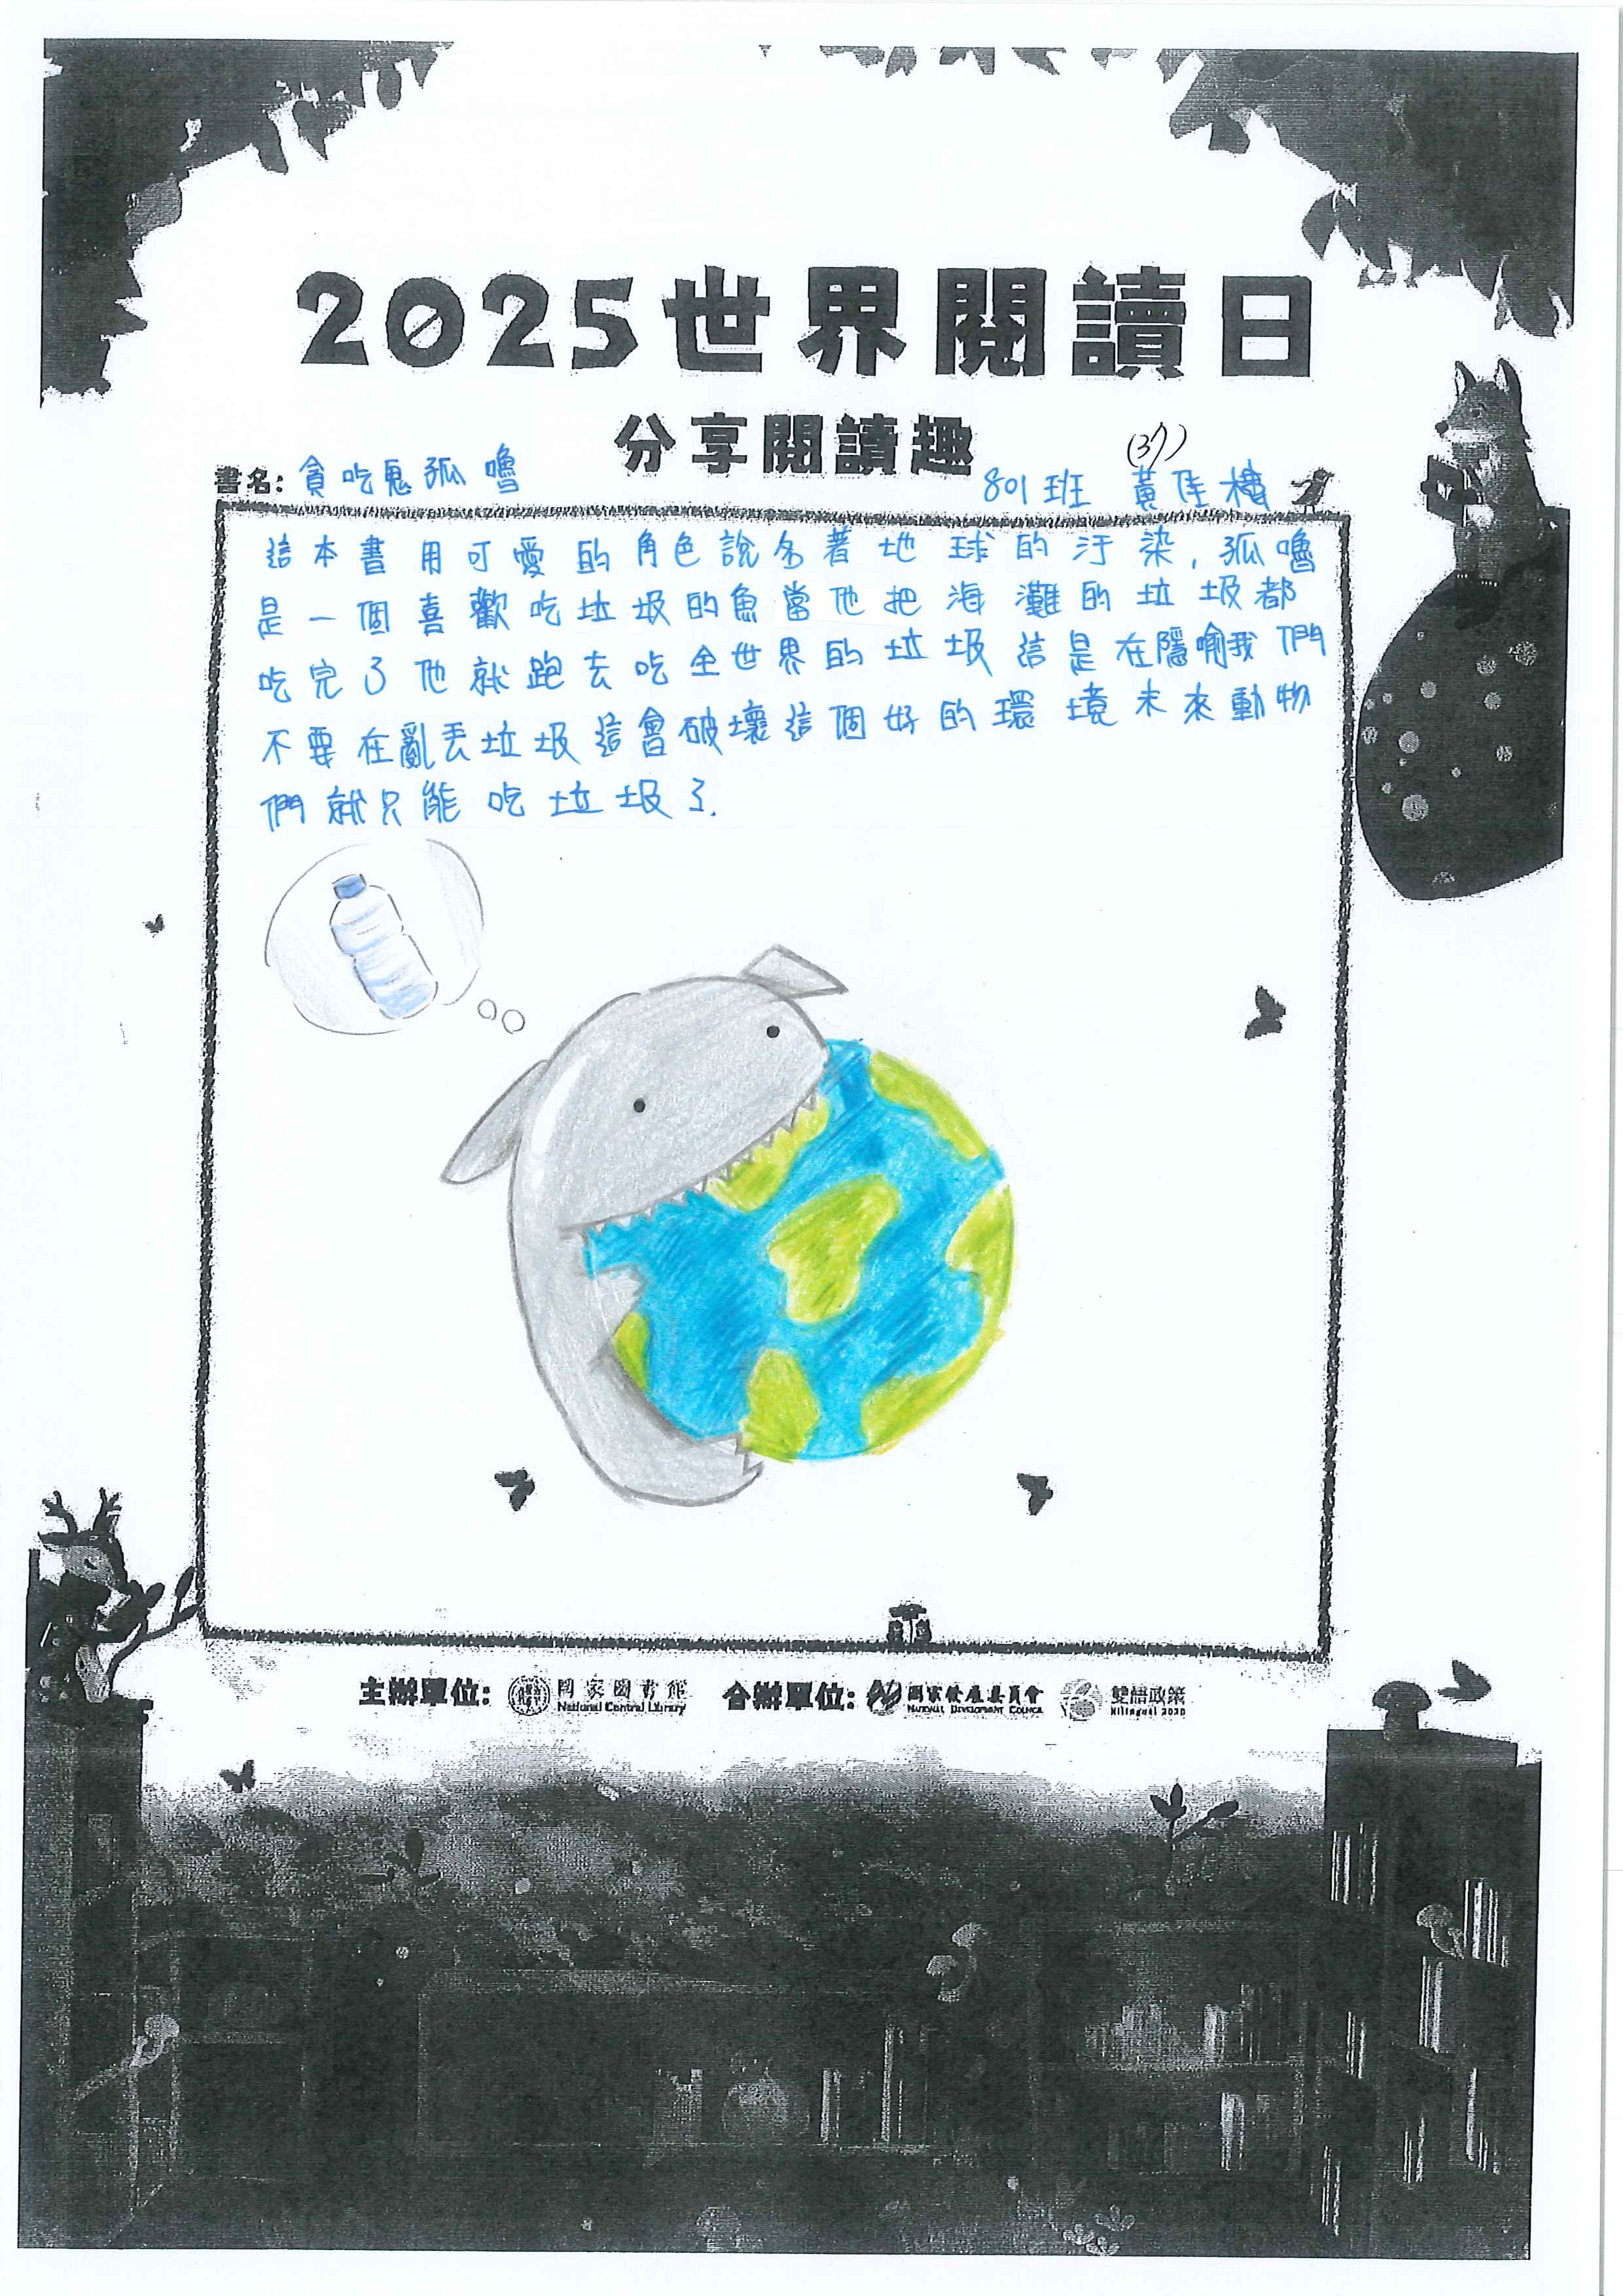 2025世界閱讀日
分享閱讀趣
(37)
書名: 貪吃鬼孤嚕
801班 黃佳樓
這本書用可愛的角色說名著地球的汙染,孤嚕
是一個喜歡吃垃圾的魚當他把海灘的垃圾都
吃完了他就跑去吃全世界的垃圾這是在隱喻我們
不要在亂丟垃圾這會破壞這個好的環境未來動物
們就只能吃垃圾了.
主辦單位: 國家圖書館 National Central Library 合辦單位: 國家發展委員會 National Development Council 雙語政策 Bilingual 2030